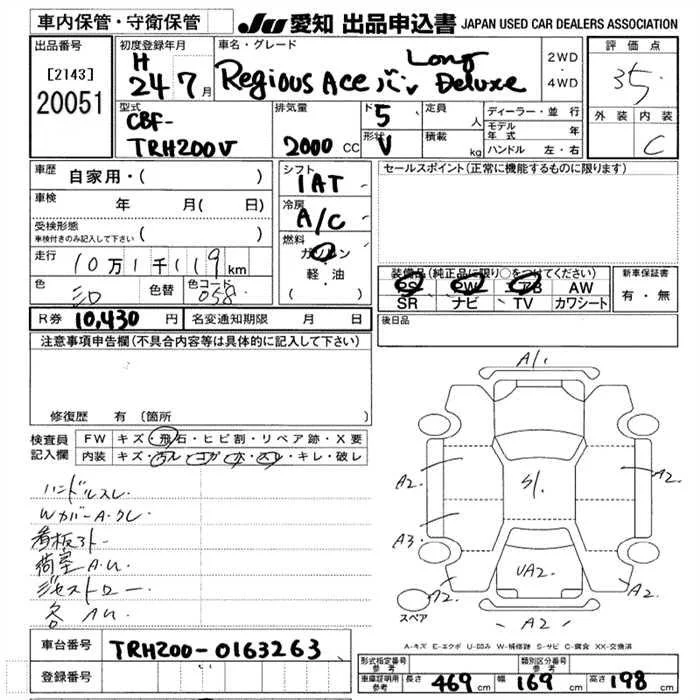 車内保管・守衛保管
JU 愛知 出品申込書 JAPAN USED CAR DEALERS ASSOCIATION
出品番号
[2143]
20051
初度登録年月
H
24 7月
車名・グレード
Long
Regious Ace バン Deluxe
2WD
4WD
評価点
3.5
外装 内装
C
型式
CBF-
TRH200V
排気量
2000 CC
ド
5
形状
V
定員
人
積載
kg
ディーラー・並行
モデル
年式 年
ハンドル 左・右
車歴
自家用・( )
車検
年 月( 日)
受検形態
車検付きのみ記入して下さい ( )
走行
10万1千119km
色
シロ
色替
色コード
058
シフト
IAT
冷房
A/C
燃料
ガソリン
軽・油
( )
セールスポイント(正常に機能するものに限ります)
装備品(純正品に限り○をつけてください)
PS PW エアB AW
SR ナビ TV カワシート
新車保証書
有・無
R券 10,430 円
名変通知期限 月 日
後日品
注意事項申告欄(不具合内容等は具体的に記入して下さい)
修復歴 有(箇所
検査員
記入欄
FW キズ・飛石・ヒビ割・リペア跡・X要
内装 キズ・汚レ・コゲ・穴・スレ・キレ・破レ
ハンドルスレ
WカバーA・クレ
看板アト
荷室A.U
各AU
A1
A2
S1
A2
A3
A2
UA2
A2
A2
スペア
A-キズ E-エクボ U-凹み W-補修跡 S-サビ C-腐食 XX-交換済
車台番号 TRH200-0163263
登録番号
形式指定番号
参考
類別区分番号
参考
車庫証明用
参考
長さ 469cm 幅 169cm 高さ 198cm